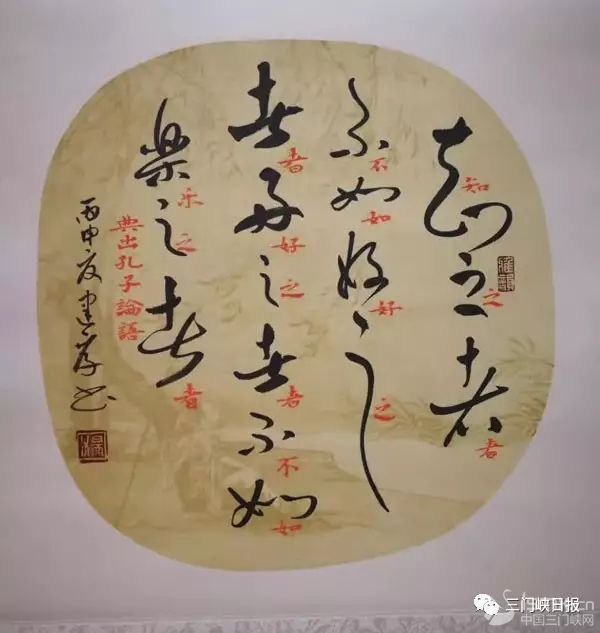 知之者
知之者
不如好之
不如好之
者好之者不如
者好之者不如
樂之者
乐之者
典出孔子論語
丙申夏建
三门峡日报
中国三门峡网